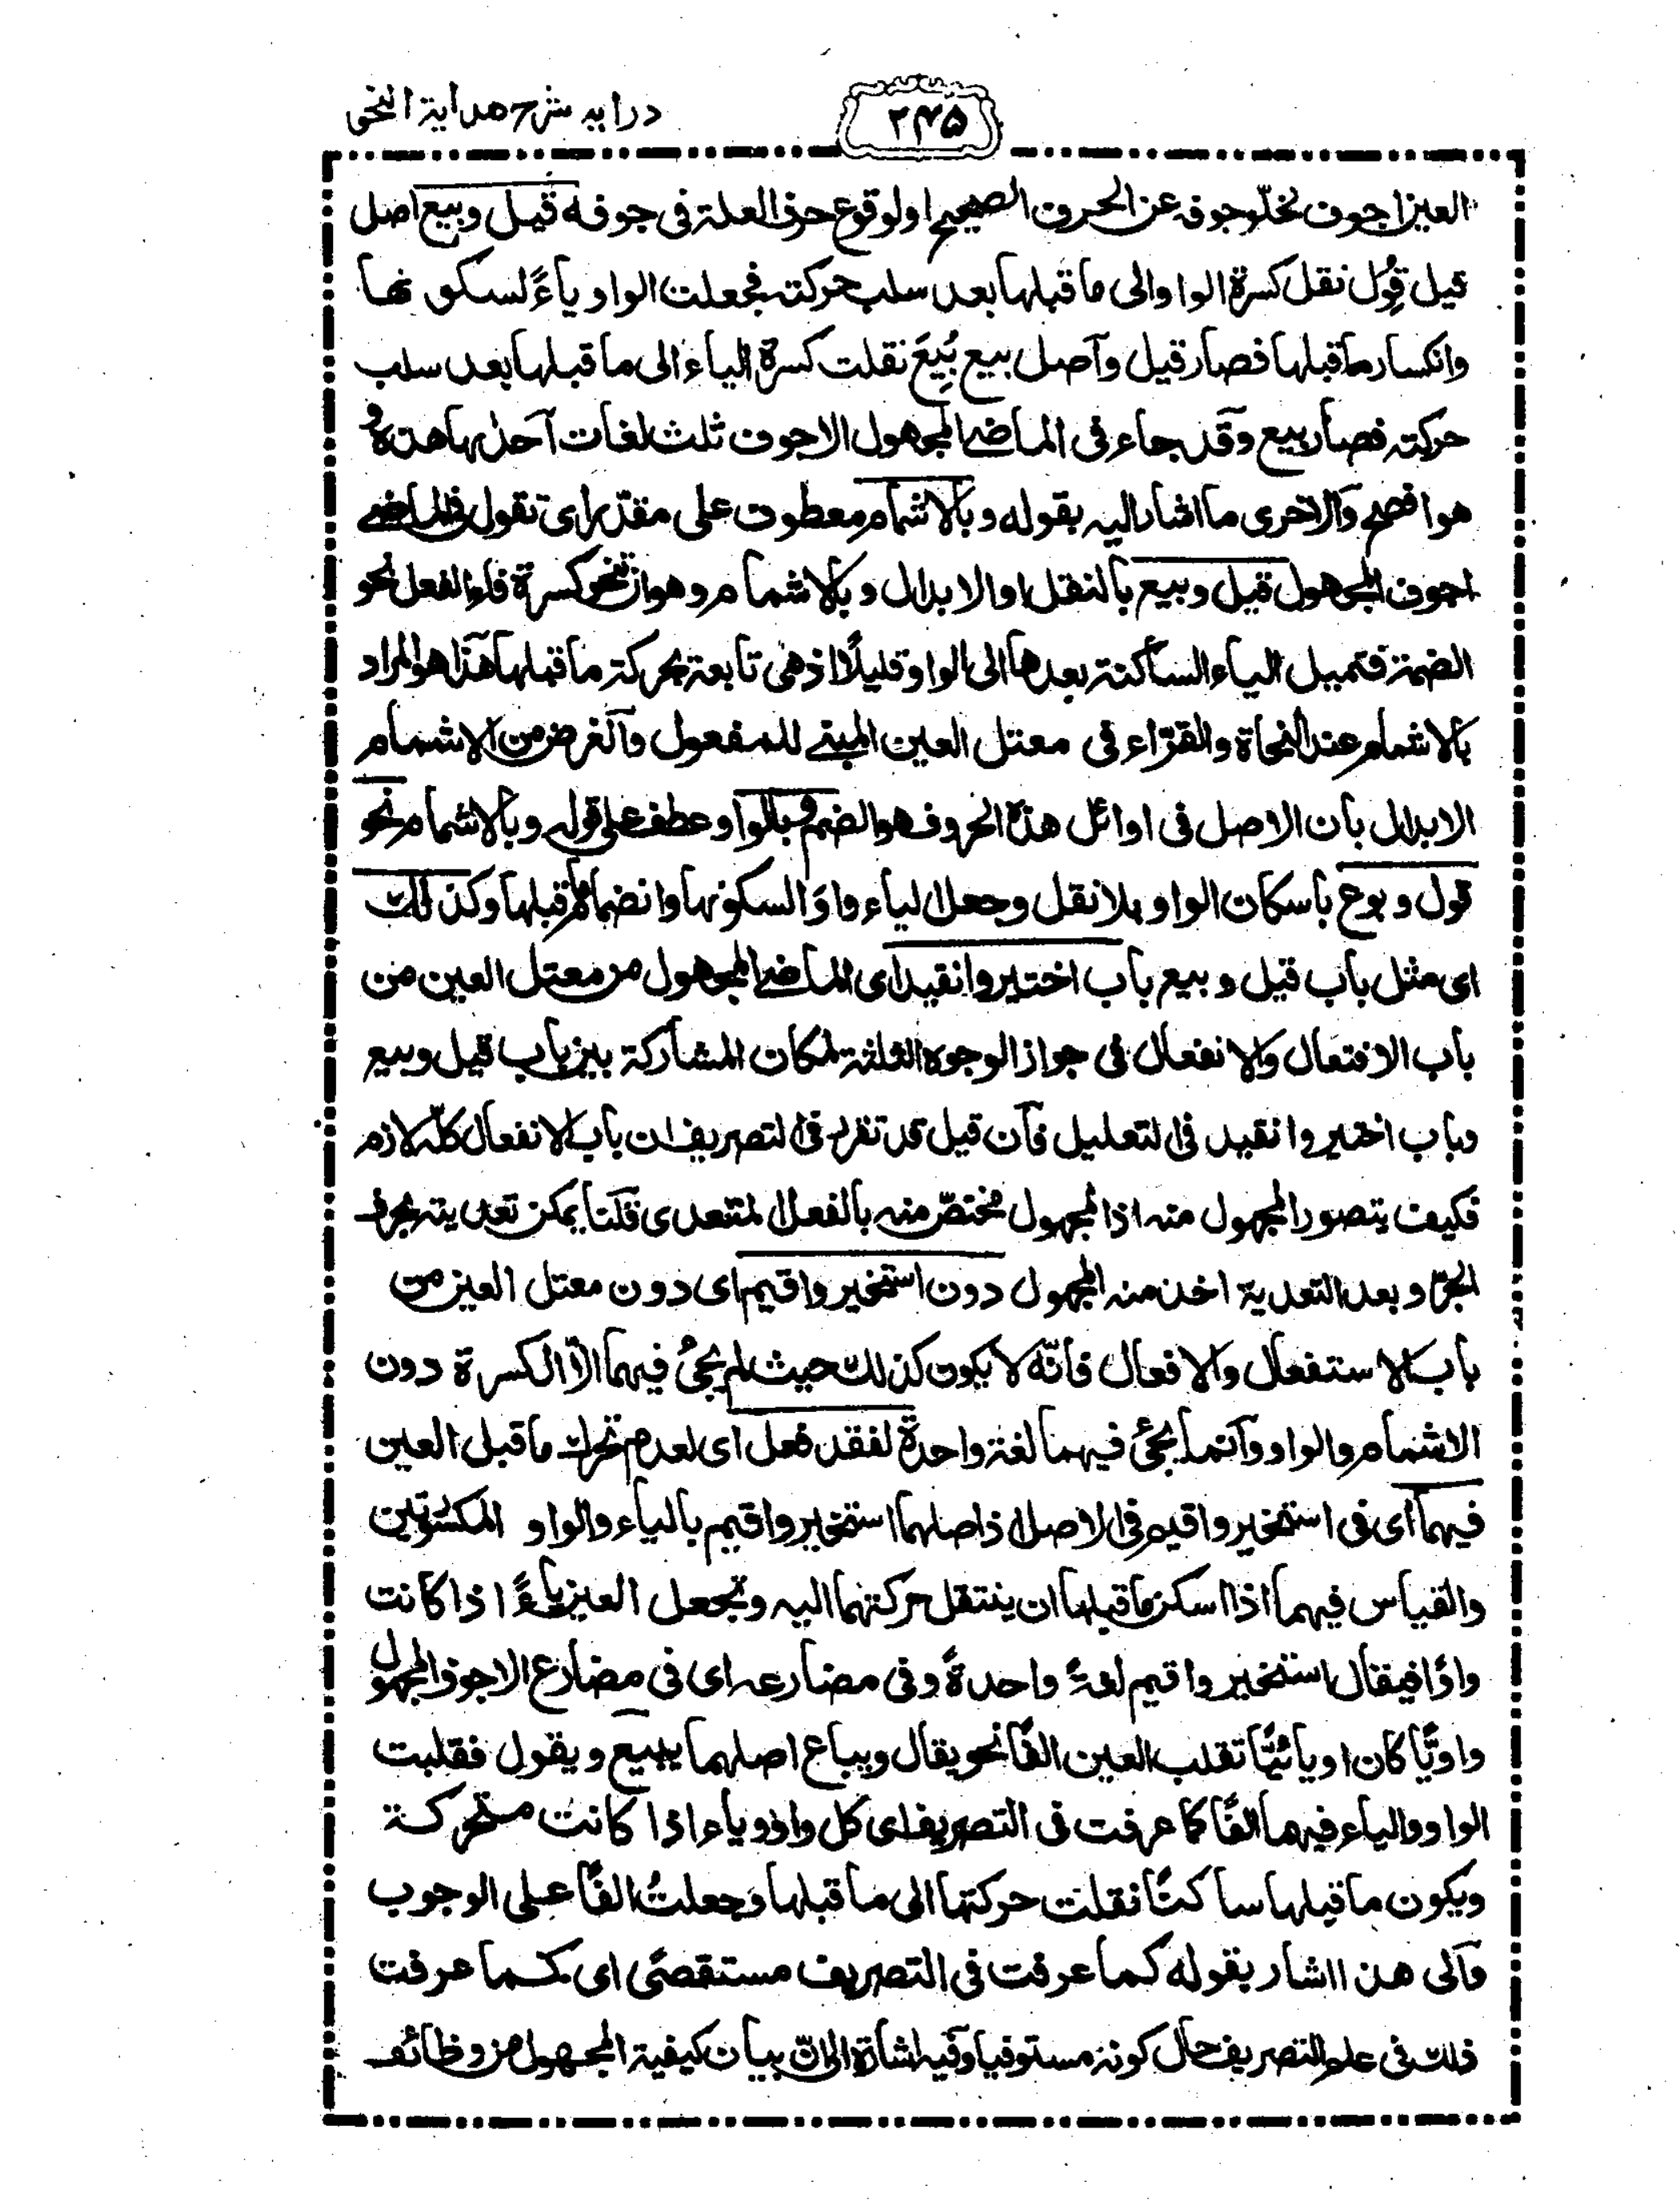 درايه شرح هداية النحو
٢٤٥
العين اجوف لخلوّ جوفه عن الحرف الصحيح او لوقوع حرف العلة فى جوفه قيل وبيع اصل
قيل قُوِل نقل كسرة الواو الى ما قبلها بعد سلب حركته فجعلت الواو ياءً لسكونها
وانكسار ما قبلها فصار قيل وآصل بيع بُيِعَ نقلت كسرة الياء الى ما قبلها بعد سلب
حركته فصار بيع وقد جاء فى الماضے المجهول الاجوف ثلث لغات آحدٰها هذه و
هو افصح وآلاخرى ما اشار اليه بقوله وبالاشمام معطوف على مقدّر اى تقول فى الماضے
اجوف المجهول قيل وبيع بالنقل او الابدال وبالاشمام وهو ان تنحو كسرة فاء الفعل نحو
الضمة فتميل الياء الساكنة بعدها الى الواو قليلًا اذ هى تابعة لحركة ما قبلها هٓذا هو المراد
بالاشمام عند النحاة والقرّاء فى معتل العين المبنے للمفعول وآلغرض من الاشمام
الابدال بان الاصل فى اوائل هذه الحروف هو الضم وبالواو عطف على قوله وبالاشمام نحو
قول وبوع باسكان الواو بلا نقل وجعل الياء واوًا لسكونها وانضمام ما قبلها وكذلك
اى مثل باب قيل وبيع باب اختير وانقيد اى الماضے المجهول من معتل العين من
باب الافتعال والانفعال فى جواز الوجوه الثلثة لمكان المشاركة بين باب قيل وبيع
وباب اختير وانقيد فى التعليل فآن قيل قد تقرر فى التصريف ان باب الانفعال كلّه لازم
فكيف يتصور المجهول منه اذ المجهول مختصّ منه بالفعل المتعدى قلٓنا يمكن تعديته بحرف
الجرّ وبعد التعدية اخذ منه المجهول دون استخير واقيم اى دون معتل العين من
باب الاستفعال والافعال فانّه لا يكون كذلك حيث لم يجئُ فيهما الّا الكسرة دون
الاشمام والواو وآنما يجئُ فيهما لغة واحدة لفقد فعل اى لعدم تحرك ما قبل العين
فيهما اى فى استخير واقيم فى الاصل اذ اصلهما استخير واقيم بالياء والواو المكسورتين
والقياس فيهما اذا سكن ما قبلها ان ينتقل حركتهما اليه وتجعل العين ياءً اذا كانت
واوًا فيقال استخير واقيم لغةً واحدةً وفى مضارعه اى فى مضارع الاجوف المجهول
واويًّا كان او يائيًّا تقلب العين الفًا نحو يقال ويباع اصلهما يبيع ويقول فقلبت
الواو والياء فيهما الفًا كما عرفت فى التصريف اى كل واو وياء اذا كانت متحركة
ويكون ما قبلها ساكنًا نقلت حركتها الى ما قبلها وجعلت الفًا على الوجوب
وآلى هذا اشار بقوله كما عرفت فى التصريف مستقصًى اى كما عرفت
ذلك فى علم التصريف حال كونه مستوفيا وفٓيه اشارة الى انّ بيان كيفية المجهول من وظائف